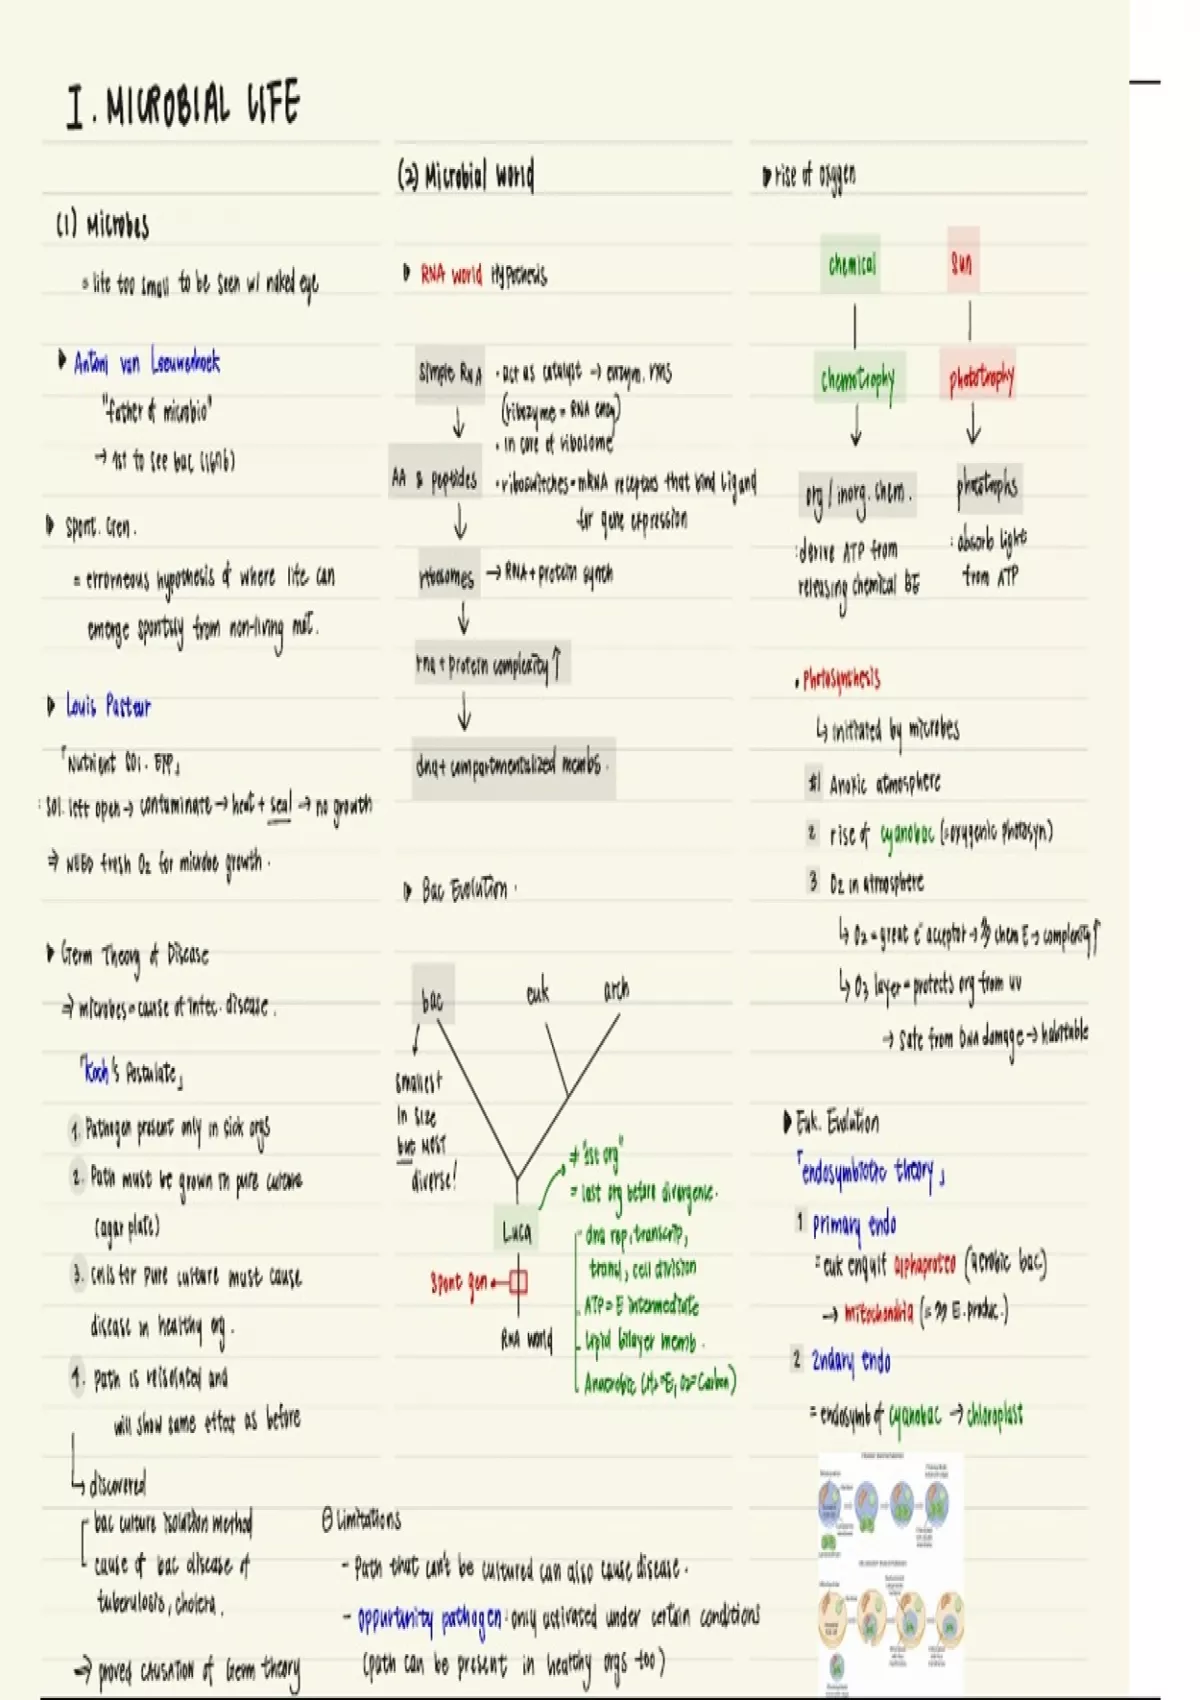 I. MICROBIAL LIFE
(1) Microbes
= life too small to be seen w/ naked eye
Antoni van Leeuwenhoek
"father of microbio"
→ 1st to see bac (1676)
Spont. Gen.
= errorneous hypothesis of where life can
emerge spontsly from non-living mat.
Louis Pasteur
「Nutrient sol. EXP」
: sol. left open → contaminate → heat + seal → no growth
⇒ NEED fresh O2 for microbe growth.
Germ Theory of Disease
⇒ microbes = cause of infec. disease.
「Koch's Postulate」
1. Pathogen present only in sick orgs
2. Path must be grown in pure culture
(agar plate)
3. cells for pure culture must cause
disease in healthy org.
4. path is reisolated and
will show same effect as before
↳ discovered
bac culture isolation method
cause of bac disease of
tuberculosis, cholera.
⇒ proved causation of Germ theory
⊖ Limitations
- Path that can't be cultured can also cause disease.
- oppurtunity pathogen : only activated under certain conditions
(path can be present in healthy orgs too)
(2) Microbial World
RNA world Hypothesis
simple RNA
· act as catalyst → enzym. rxns
(ribozyme = RNA enzy)
· in core of ribosome
AA & peptides
· riboswitches = mRNA receptors that bind ligand
for gene expression
ribosomes → RNA + protein synth
rna + protein complexity ↑
dna + compartmentalized membs.
Bac Evolution.
bac euk arch
smallest
in size
but most
diverse!
≠ "1st org"
= last org before divergence.
Luca
dna rep, transcrip,
transl, cell division
spont gen
ATP = E intermediate
Lipid bilayer memb.
RNA world
Anaerobic (H2=E, CO2=Carbon)
rise of oxygen
chemical sun
chemotrophy phototrophy
org / inorg. chem. phototrophs
: derive ATP from
releasing chemical BE
: absorb light
from ATP
· Photosynthesis
↳ initiated by microbes
#1 Anoxic atmosphere
2 rise of cyanobac (=oxygenic photosyn)
3 O2 in atmosphere
↳ O2 = great e⁻ acceptor → ≫ chem E → complexity ↑
↳ O3 layer = protects org from uv
→ safe from DNA damage → habitable
Euk. Evolution
「endosymbiotic theory」
1 primary endo
= euk engulf alphaproteo (aerobic bac)
→ mitochondria (= ≫ E. produc.)
2 2ndary endo
= endosymb of cyanobac → chloroplast